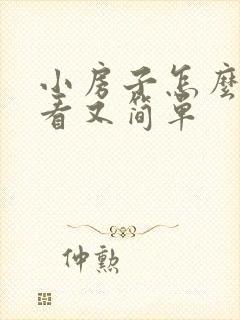 小房子怎麼
看又简单
仲勲